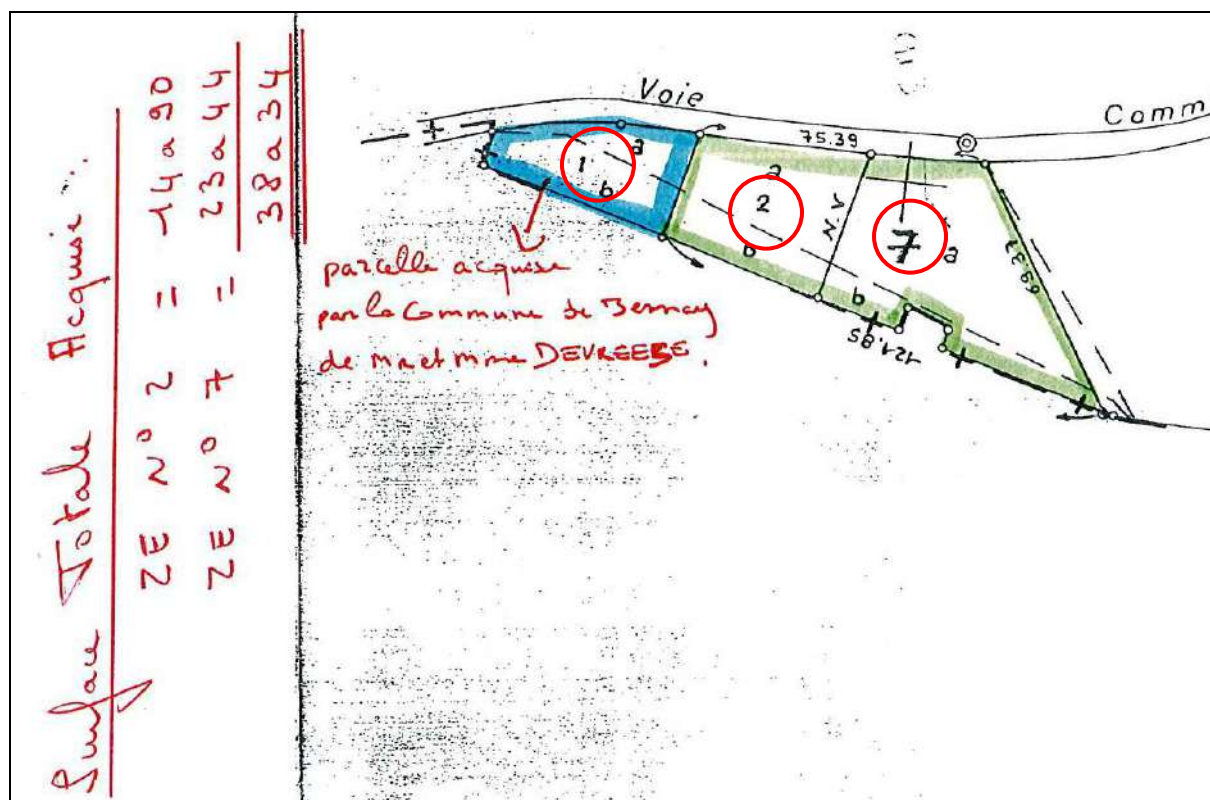 Surface Totale Acquise.
ZE N° 2 = 14 a 90
ZE N° 7 = 23 a 44
38 a 34
Voie
Comm
75.39
1
a
b
2
a
b
N.V
7
a
b
69.37
121.85
parcelle acquise
par la Commune de Bernay
de Mr et Mme DEVREESE.